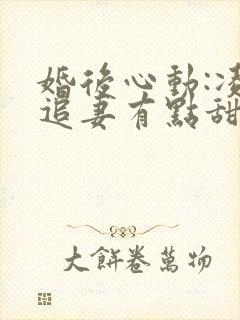 婚後心動:凌
追妻有點甜
大餅卷萬物